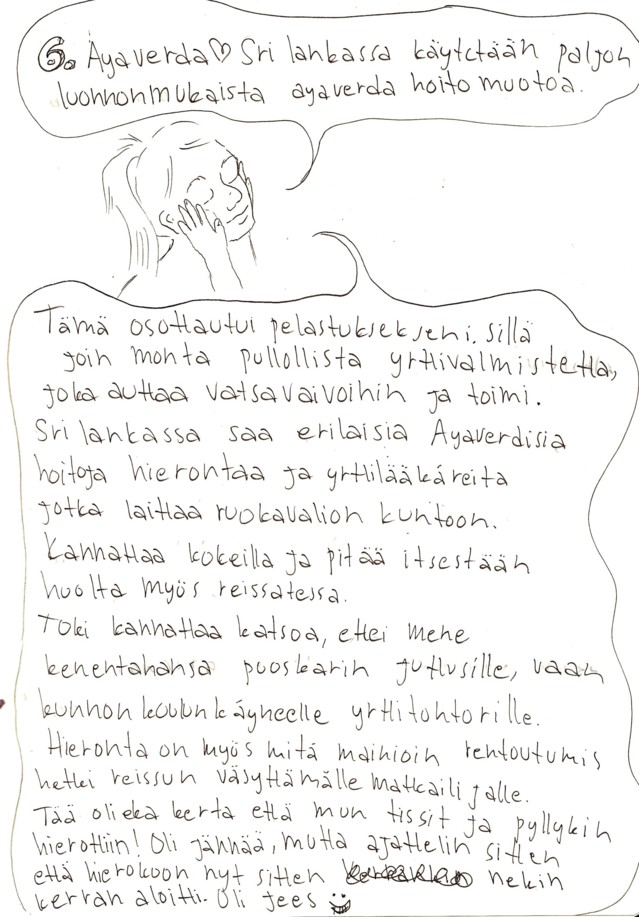 6. Ayaverda♡ Sri lankassa käytetään paljon
luonnonmukaista ayaverda hoito muotoa.
Tämä osottautui pelastuksekseni, sillä
join monta pullollista yrttivalmistetta,
joka auttaa vatsavaivoihin ja toimi.
Sri lankassa saa erilaisia Ayaverdisia
hoitoja hierontaa ja yrttilääkäreitä
jotka laittaa ruokavalion kuntoon.
Kannattaa kokeilla ja pitää itsestään
huolta myös reissatessa.
Toki kannattaa katsoa, ettei mene
kenentahansa puoskarin juttusille, vaan
kunnon koulun käyneelle yrttitohtorille.
Hieronta on myös mitä mainioin rentoutumis
hetki reissun väsyttämälle matkailijalle.
Tää oli eka kerta että mun tissit ja pyllykin
hierottiin! Oli jännää, mutta ajattelin sitten
että hierokoon nyt sitten nekin
kerran aloitti. Oli jees